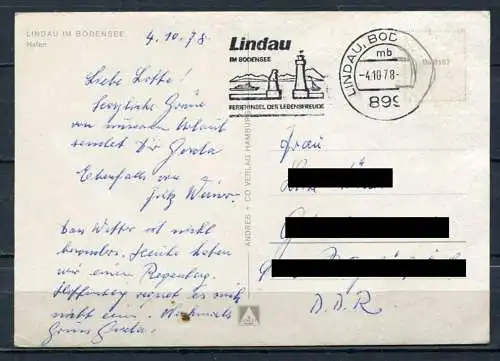 LINDAU IM BODENSEE
Hafen
4.10.78
Liebe Lotte!
Herzliche Grüße
von unserem Urlaub
sendet Dir Gerda
Ebenfalls von
Fritz
Das Wetter ist nicht
besonders. Heute haben
wir einen Regentag.
Hoffentlich regnet es sich
nicht ein. Nochmals
Gruß Gerda.
ANDRES + CO VERLAG HAMBURG
Lindau
IM BODENSEE
FERIENINSEL DER LEBENSFREUDE
LINDAU, BOD
mb
-4.10.78-
899
Frau
D.D.R